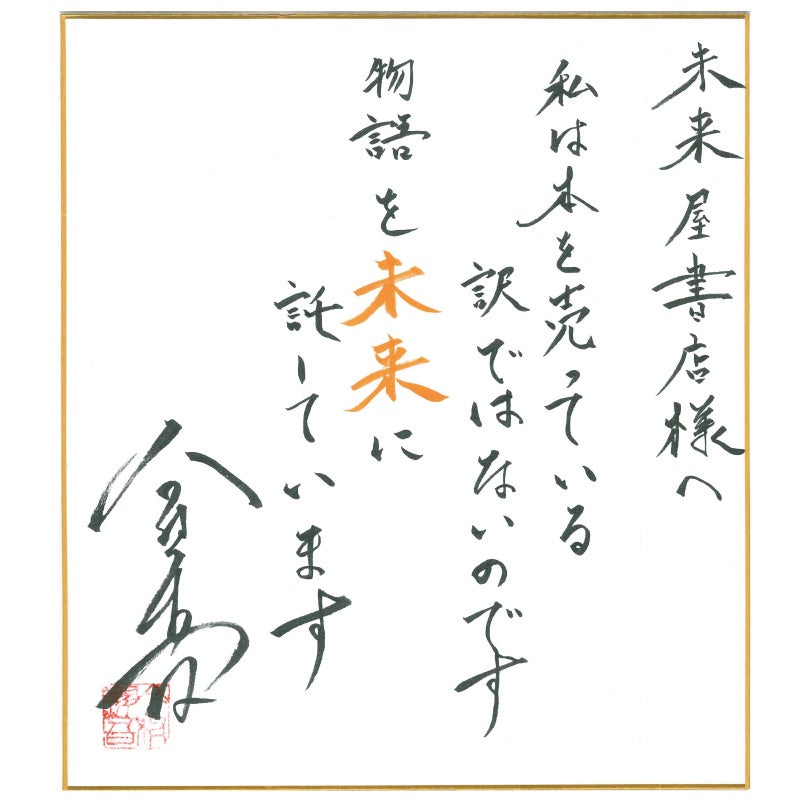 未来屋書店様へ
私は本を売っている
訳ではないのです
物語を未来に
託しています